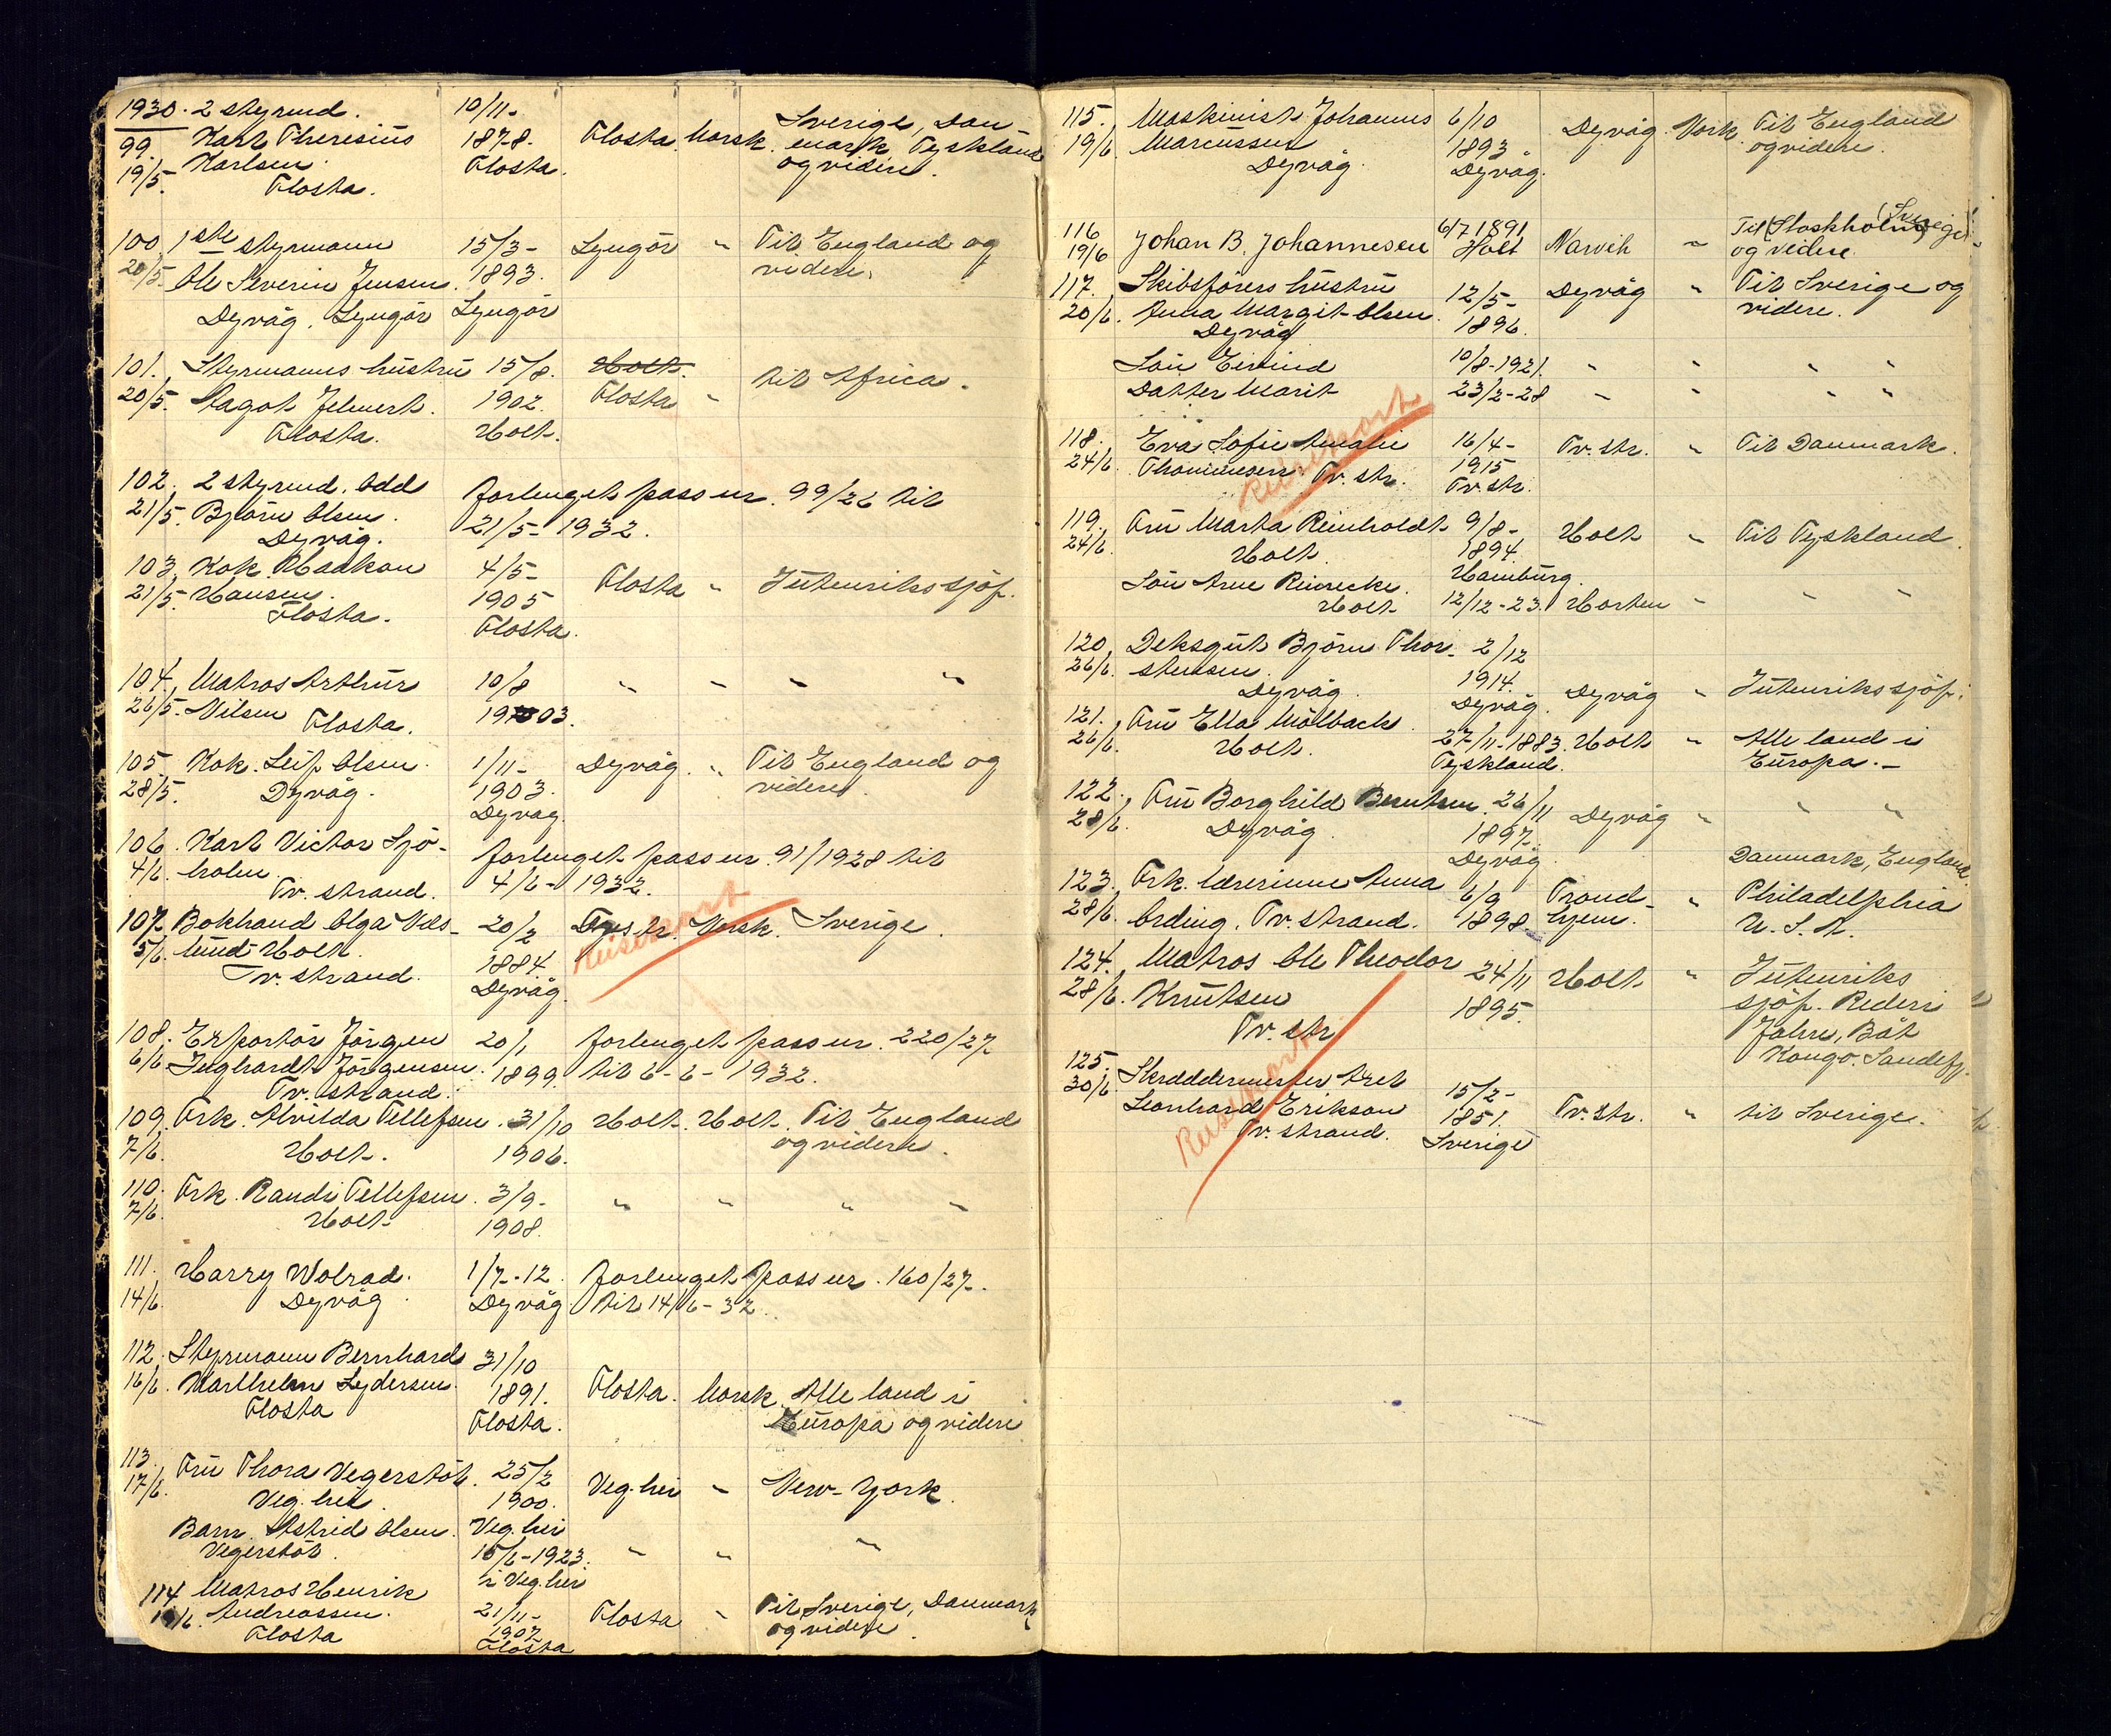 1930. 2 styrmd. 10/11-
99. Karl Theresius 1878. Flosta. Norsk. Sverige, Dan-
19/5. Karlsen Flosta. mark Tyskland
Flosta. og videre.
100, 1ste styrmann 15/3- Lyngör " Til England og
20/5. Ole Severin Jensen. 1893. videre.
Dyvåg. Lyngör Lyngör
101. Styrmanns hustru 15/8. Holt. til Africa.
20/5. Dagot Jelmert. 1902. Flosta "
Flosta. Holt.
102. 2 styrmd. Odd forlenget pass nr. 99/26 til
21/5. Björn Olsen. 21/5- 1932.
Dyvåg.
103, Kok. Haakon 4/5- Flosta " Utenrikssjöf.
21/5. Hansen. 1905
Flosta. Flosta.
104, Matros Arthur 10/8 " " " "
26/5. Nilsen Flosta. 1903.
105 Kok. Leif Olsen. 1/11- Dyvåg. " Til England og
28/5. Dyvåg. 1903. videre.
Dyvåg.
106. Karl Victor Sjö- forlenget pass nr. 91/1928 til
4/6. holm. 4/6- 1932.
Tv. strand.
107. Bokhand Olga Næs- 20/2 Norsk. Sverige.
5/6. lund Holt. 1884.
Tv. strand. Dyvåg.
Reisekort
108. Exportör Jörgen 20/1 forlenget pass nr. 220/27
6/6 Inghardt Jörgensen. 1899. til 6-6- 1932.
Tv. strand.
109. Frk. Alvilda Tellefsen. 31/10 Holt. Holt. Til England
7/6. Holt. 1906. og videre.
110. Frk. Randi Tellefsen. 3/9- " " " "
7/6. Holt 1908.
111. Harry Wolrad. 1/7-12. forlenget pass nr. 160/27.
14/6. Dyvåg. Dyvåg til 14/6-32.
112, Styrmann Bernhard 31/10
16/6. Marthelm Lydersen. 1891. Flosta. Norsk. Alle land i
Flosta Flosta. Europa og videre
113. Fru Thora Vegerstöl. 25/2 Veg.hei " New-York.
17/6. Veg. hei. 1900.
Barn. Astrid Olsen. Veg. hei
Vegerstöl. 15/6-1923. " " "
i Veg.hei
114 Matros Henrik
/6. Andreassen. 21/11- Flosta " Til Sverige, Danmark
Flosta 1907 og videre.
Flosta
115. Maskinist Johannes 6/10 Dyvåg. Norsk. Til England
19/6. Marcussen 1893. og videre.
Dyvåg. Dyvåg.
116 Johan B. Johannesen 6/7 1891 Narvik " Til (Stockholm) (Sverige)
19/6 Holt og videre.
117. Skibsförers hustru 12/5- Dyvåg " Til Sverige og
20/6. Anna Margit Olsen. 1896. videre.
Dyvåg
Sön Eivind 10/8-1921. " " " "
Datter Marit 23/2-28 " " " "
118. Eva Sofie Amalie 16/4- Tv. str. " Til Danmark.
24/6. Thommesen. Tv. str. 1915
Tv. str.
Reisekort
119. Fru Marta Reinholdt 9/8- Holt " Til Tyskland.
24/6. Holt. 1894.
Hamburg.
Sön Arne Reinecke.
Holt 12/12-23. Horten " " "
120, Deksgut Björn Thor- 2/12
26/6. stensen. 1914. Dyvåg " Utenrikssjöf.
Dyvåg. Dyvåg.
121. Fru Ella Mölback. 27/11-1883. Holt " Alle land i
26/6. Holt. Tyskland. Europa.-
122. Fru Borghild Berntsen. 26/11 Dyvåg " " "
28/6. Dyvåg. 1897.
Dyvåg. Danmark, England.
123. Frk. lærerinne Anna 6/9 Trond- " Philadelphia
28/6. Erding. Tv. strand. 1898. hjem. U. S. A.
124. Matros Ole Theodor 24/11 Holt " Utenriks
28/6. Knutsen 1895. sjöf. Rederi
Tv. str Jahre, Båt
Kongo. Sandefj.
125. Skreddermester Axel 15/2-
30/6. Leonhard Erikson 1851. Tv. str. " til Sverige.
Tv. strand. Sverige
Reisekort